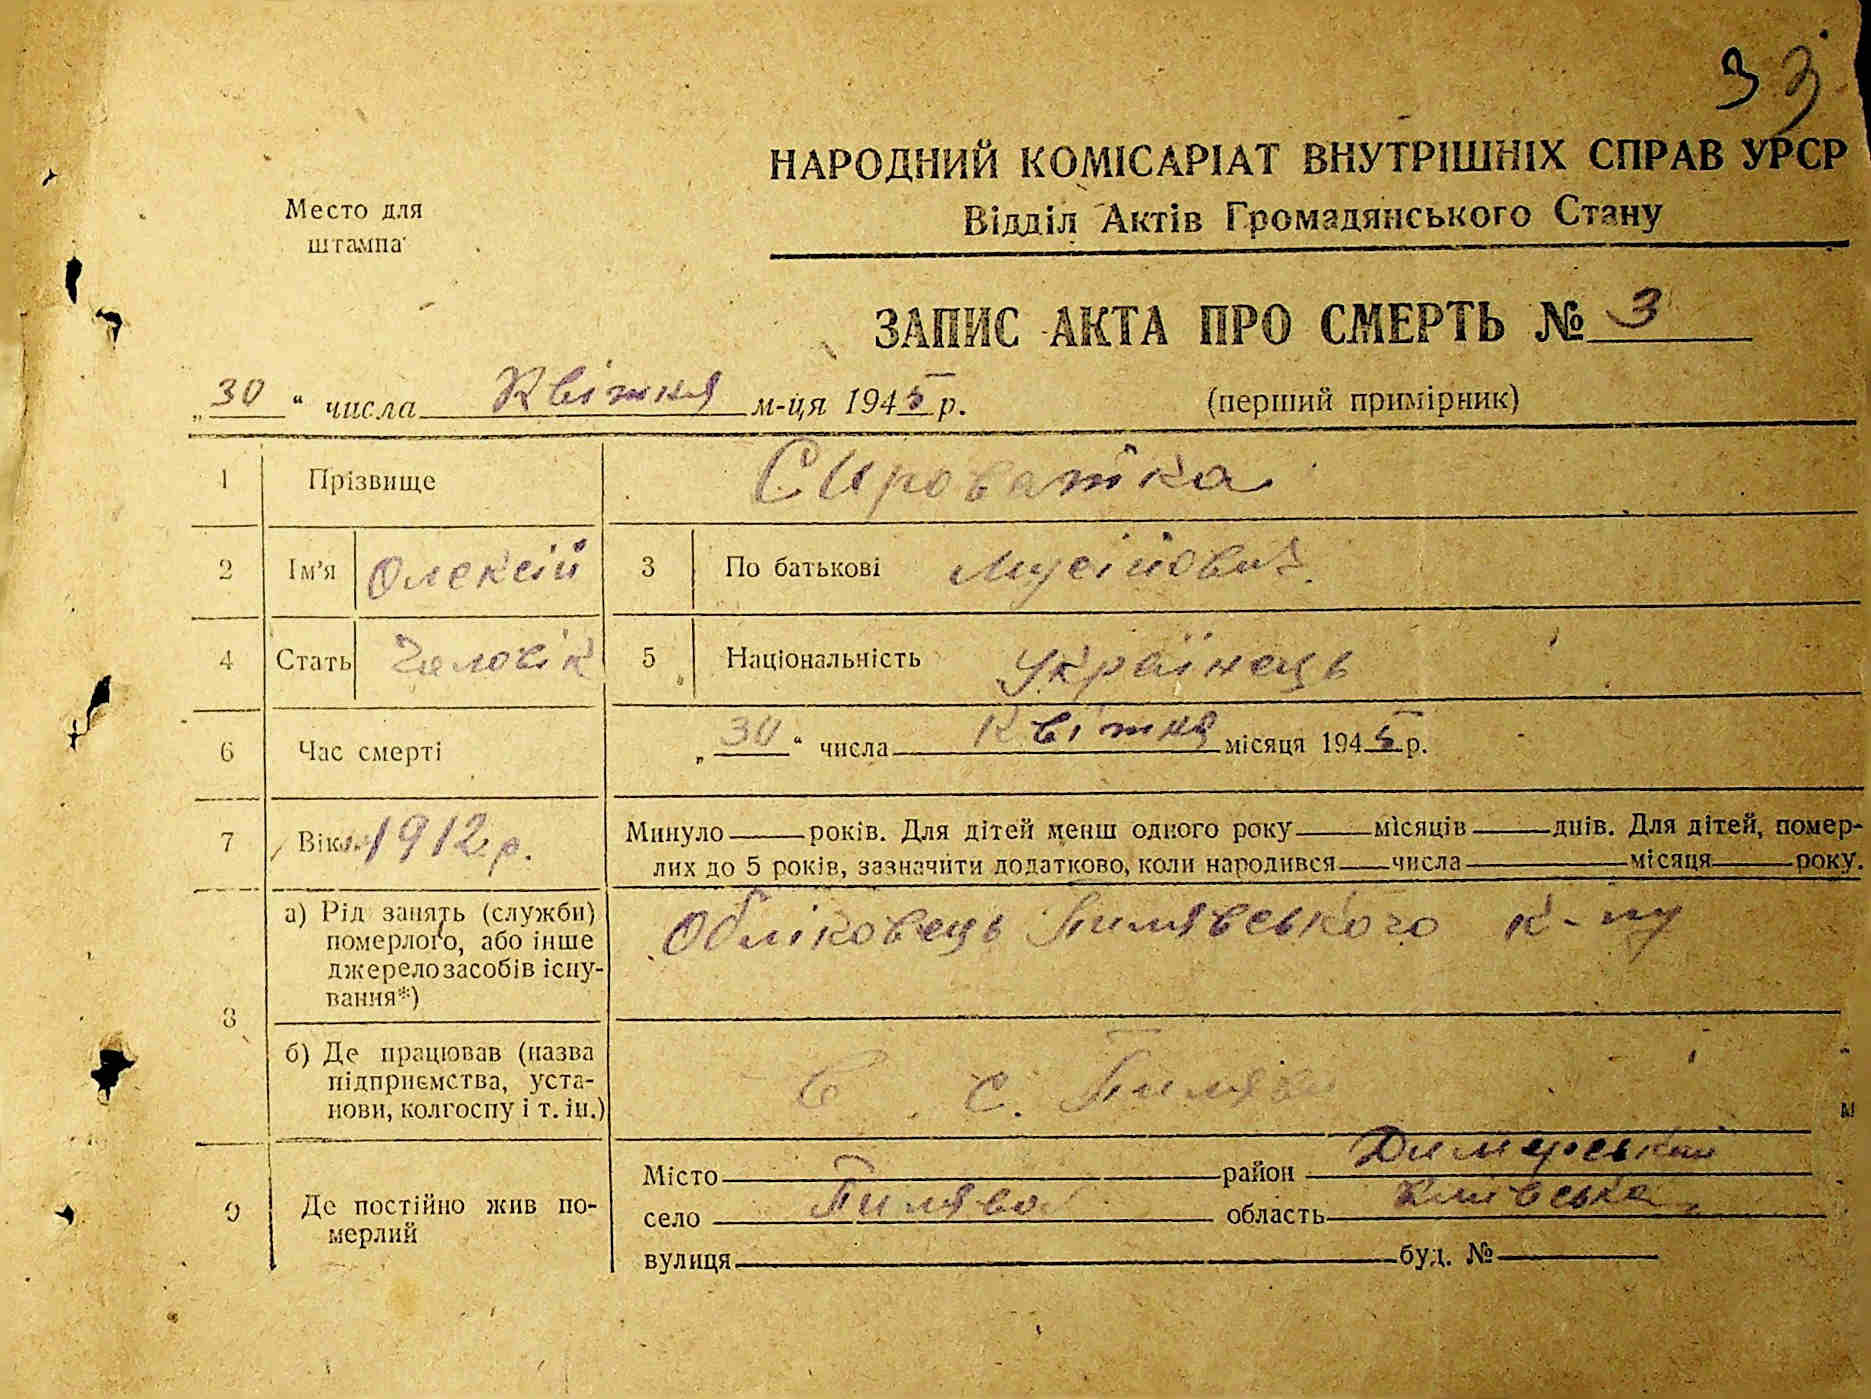 33
НАРОДНИЙ КОМІСАРІАТ ВНУТРІШНІХ СПРАВ УРСР
Відділ Актів Громадянського Стану
Место для
штампа
ЗАПИС АКТА ПРО СМЕРТЬ № 3
„30“ числа Квітня м-ця 1945 р. (перший примірник)
1 Прізвище Сироватка
2 Ім'я Олексій 3 По батькові Мусійович
4 Стать Чоловік 5 Національність Українець
6 Час смерті „30“ числа Квітня місяця 1945 р.
7 Вік 1912 р. Минуло років. Для дітей менш одного року місяців днів. Для дітей, помер-
лих до 5 років, зазначити додатково, коли народився числа місяця року.
8 а) Рід занять (служби)
померлого, або інше
джерело засобів існу-
вання*)
Обліковець Пилявського к-пу
б) Де працював (назва
підприємства, уста-
нови, колгоспу і т. ін.)
В с. Пиляві
м
9 Де постійно жив по-
мерлий
Місто район Димерський
село Пилява область Київська
вулиця буд. №